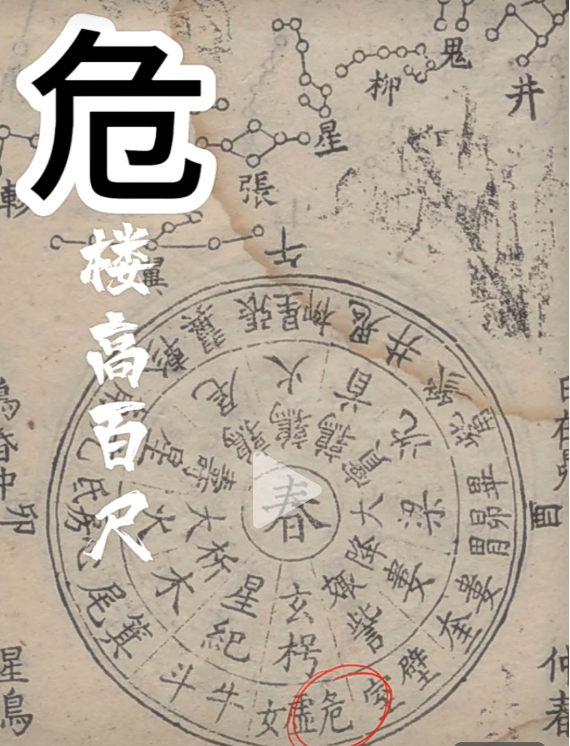 危
楼
高
百
尺
井
鬼
柳
星
張
翼
軫
午
軫翼張星柳鬼井觜
畢昴胃
婁奎
壁室
危虛女
牛斗
箕尾
房氐
鶉尾
鶉火
鶉首
實沈
大梁
降婁
娵訾
玄枵
星紀
析木
大火
壽星
春
酉
日在昴
仲春
鳥昏中
卯
星鳥